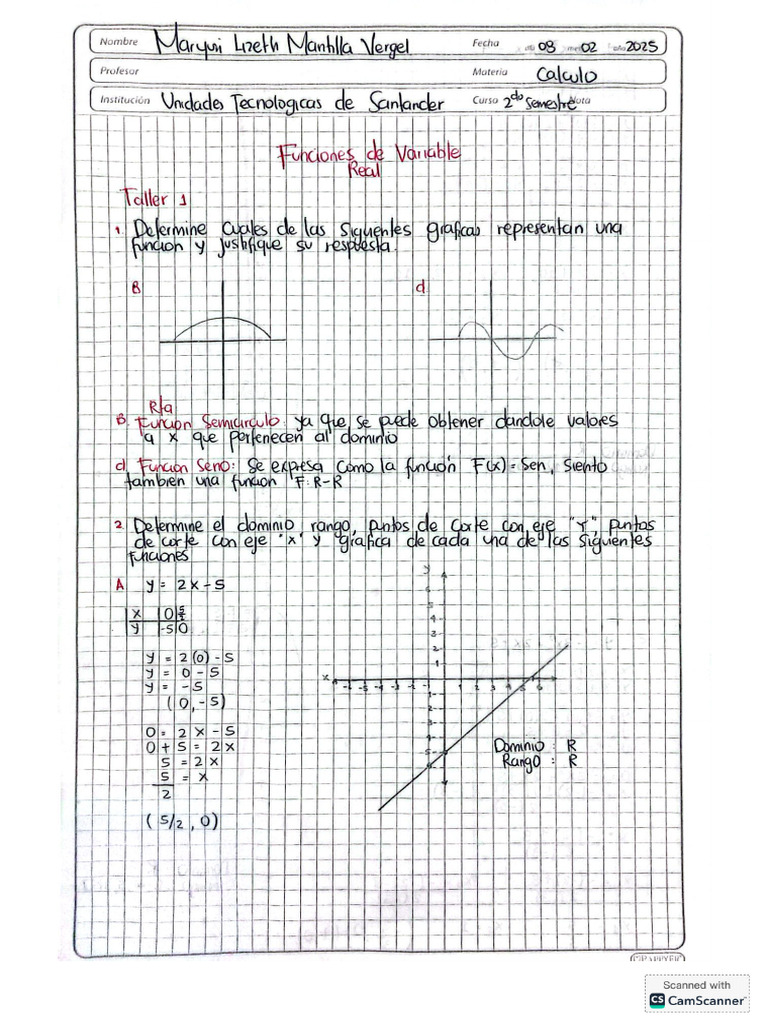 Nombre Maryuri Lizeth Mantilla Vergel Fecha día 08 mes 02 año 2025
Profesor Materia Calculo
Institución Unidades Tecnologicas de Santander Curso 2do semestre Nota
Funciones de Variable
Real
Taller 1
1. Determine cuales de las siguientes graficas representan una
funcion y justifique su respuesta.
B d
R/a
B. Funcion Semicirculo: ya que se puede obtener dandole valores
a x que pertenecen al dominio
d) Funcion Seno: Se expresa como la función F(x) = Sen, siento
tambien una funcion F: R-R
2. Determine el dominio rango, puntos de corte con eje "Y", puntos
de corte con eje "x" y grafica de cada una de las siguientes
funciones
A y = 2x - 5
x 0 5/2
y -5 0
y = 2(0) - 5
y = 0 - 5
y = -5
(0, -5)
0 = 2x - 5
0 + 5 = 2x
5 = 2x
5 = x
2
(5/2, 0)
y
4
3
2
1
x -6 -5 -4 -3 -2 -1 1 2 3 4 5 6
-1
-2
-3
-4
-5
-6
Dominio : R
Rango : R
Scanned with
CS CamScanner